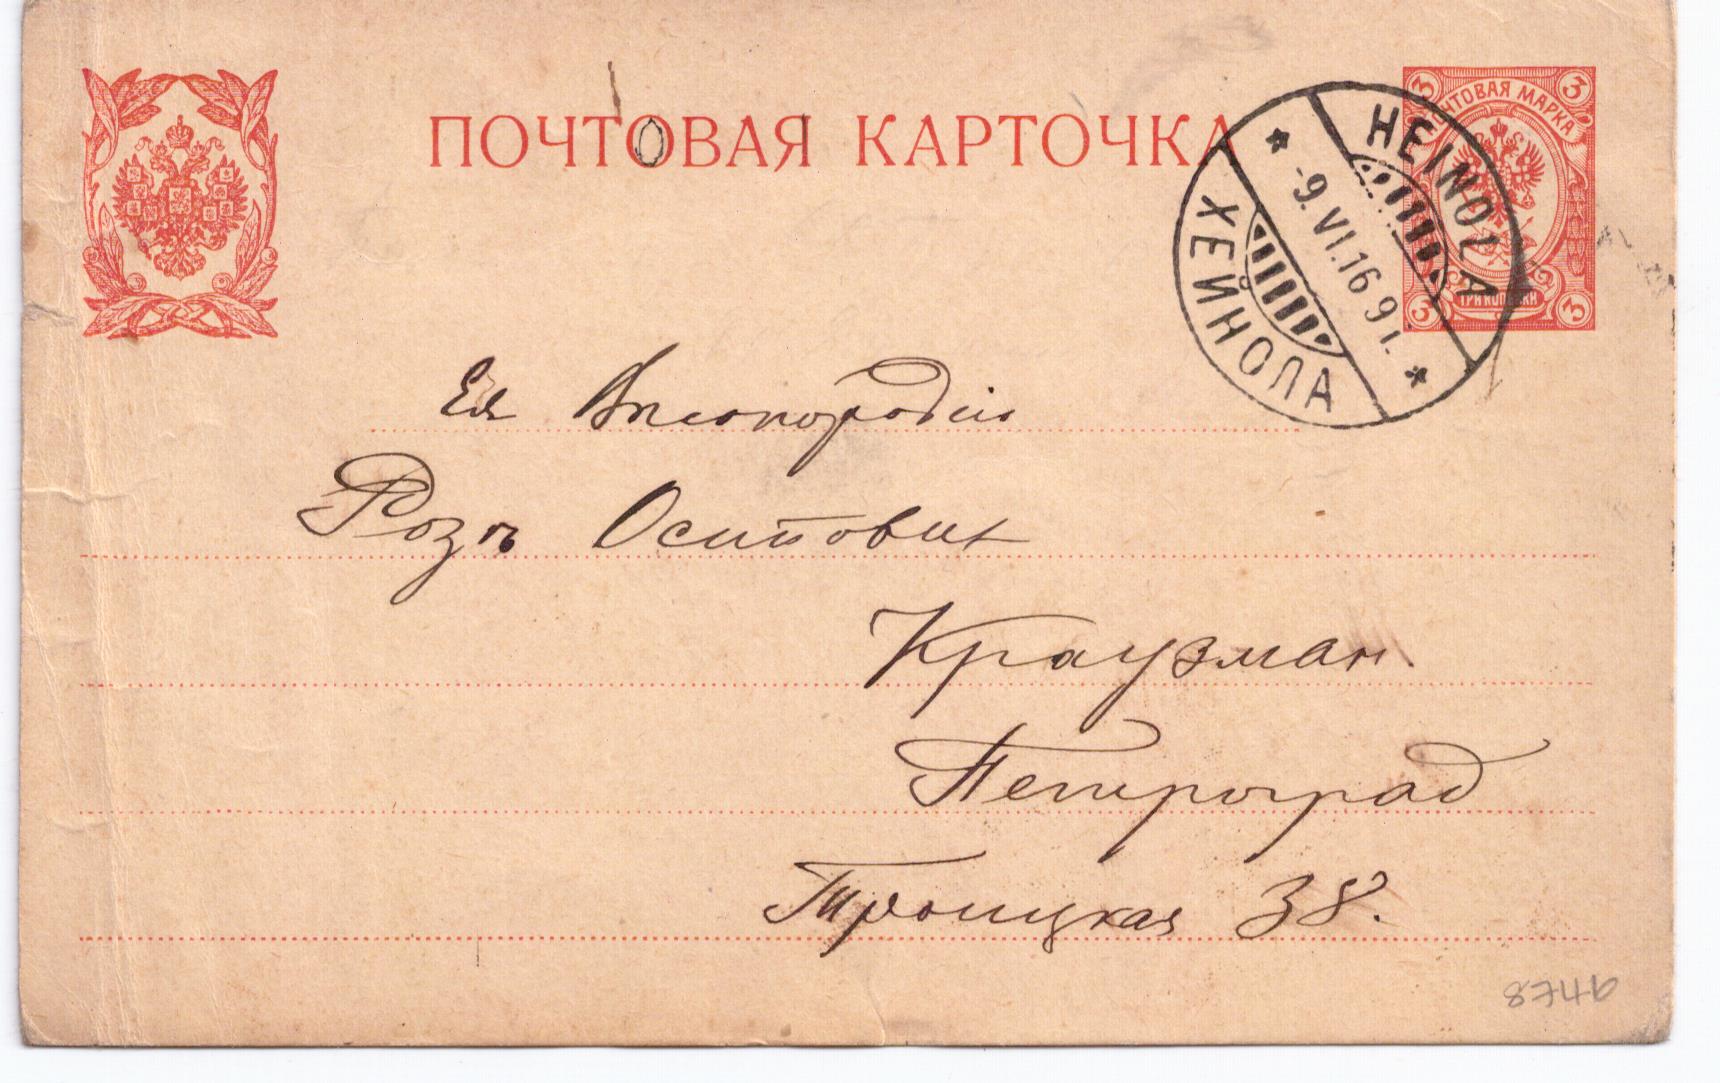 ПОЧТОВАЯ КАРТОЧКА
ПОЧТОВАЯ МАРКА
3 3
3 3
ТРИ КОПЕЙКИ
HEINOLA
-9.VI.16 9 i.
ХЕЙНОЛА
Ея Высокородію
Розѣ Осиповнѣ
Краузман.
Петроград
Троицкая 38.
8746